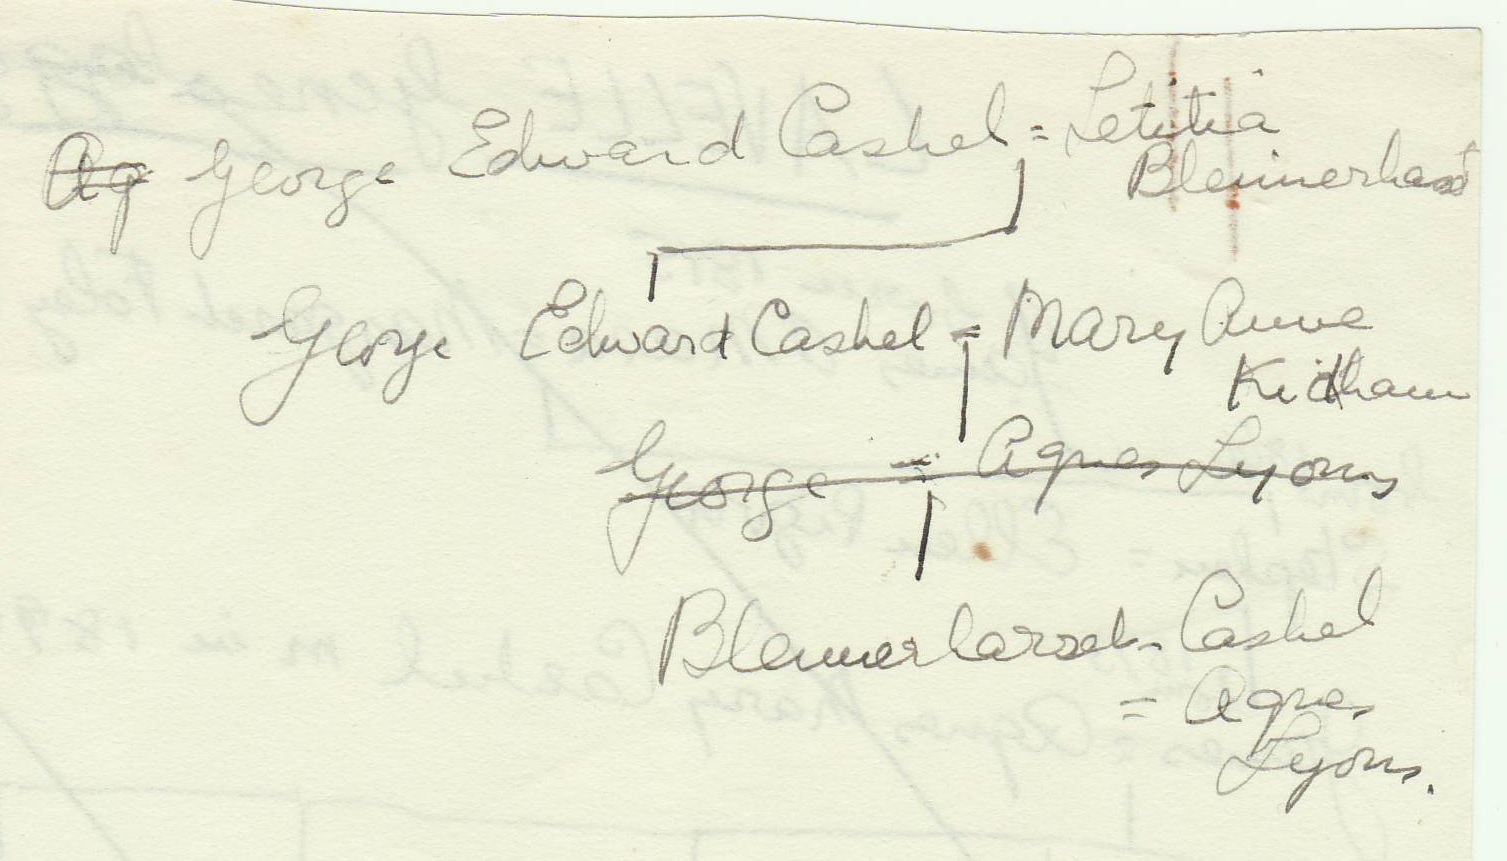 Ag George Edward Cashel = Letitia
Blennerhasst
George Edward Cashel = Mary Anne
Kidham
George = Agnes Lyons
Blennerhasset Cashel
= Agnes
Lyons.